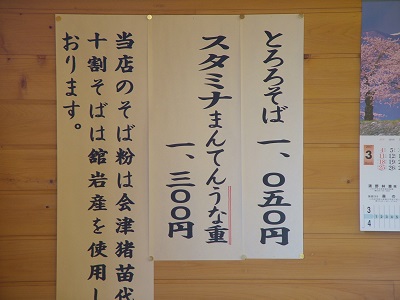 とろろそば 一、〇五〇円
スタミナまんてんうな重
一、三〇〇円
当店のそば粉は会津猪苗代
十割そばは舘岩産を使用し
おります。
3
3
4